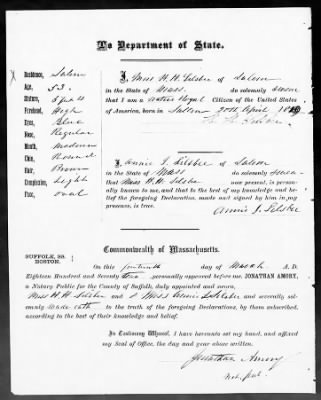 To Department of State.
Residence, Salem
Age, 53.
Stature, 5 feet
Forehead, High
Eyes, Blue
Nose, Regular
Mouth, medium
Chin, Round
Hair, Brown
Complexion, Light
Face, oval
I, Miss H. H. Silsbee of Salem
in the State of Mass. do solemnly swear
that I am a native loyal Citizen of the United States
of America, born in Salem 20th April
I, Annie J. Silsbee of Salem
in the State of Mass do solemnly swear
that Miss H. H. Silsbee now present, is person-
ally known to me, and that to the best of my knowledge and be-
lief the foregoing Declaration, made and signed by him in my
presence, is true.
Annie J. Silsbee
Commonwealth of Massachusetts.
SUFFOLK, SS:
BOSTON.
On this fourteenth day of March A. D.
Eighteen Hundred and Seventy personally appeared before me, JONATHAN AMORY,
a Notary Public for the County of Suffolk, duly appointed and sworn,
Miss H. H. Silsbee and Miss Annie J. Silsbee and severally, sol-
emnly made oath to the truth of the foregoing Declarations, by them subscribed,
according to the best of their knowledge and belief.
In Testimony Whereof, I have hereunto set my hand, and affixed
my Seal of Office, the day and year above written.
Jonathan Amory
Not. Pub.